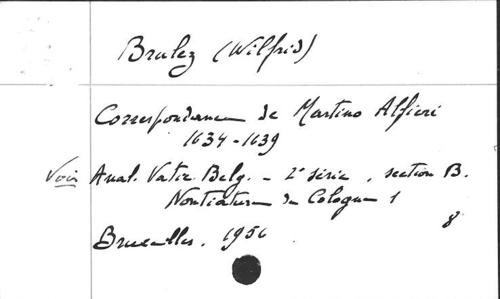 Brulez (Wilfrid)
Correspondance de Martino Alfieri
1634-1639
Voir Anal. Vatic. Belg. - 2e série, section B.
Nontiature de Cologne 1
Bruxelles, 1956
8